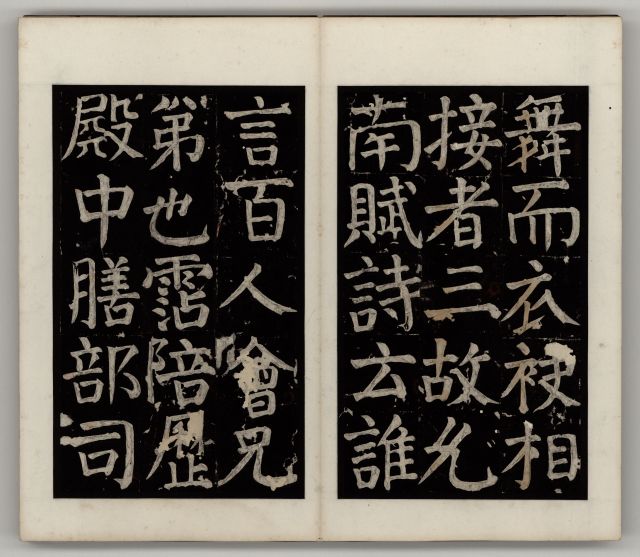 舞而衣袂相
接者三故允
南賦詩云誰
言百人會兄
第也霑陪歷
殿中膳部司